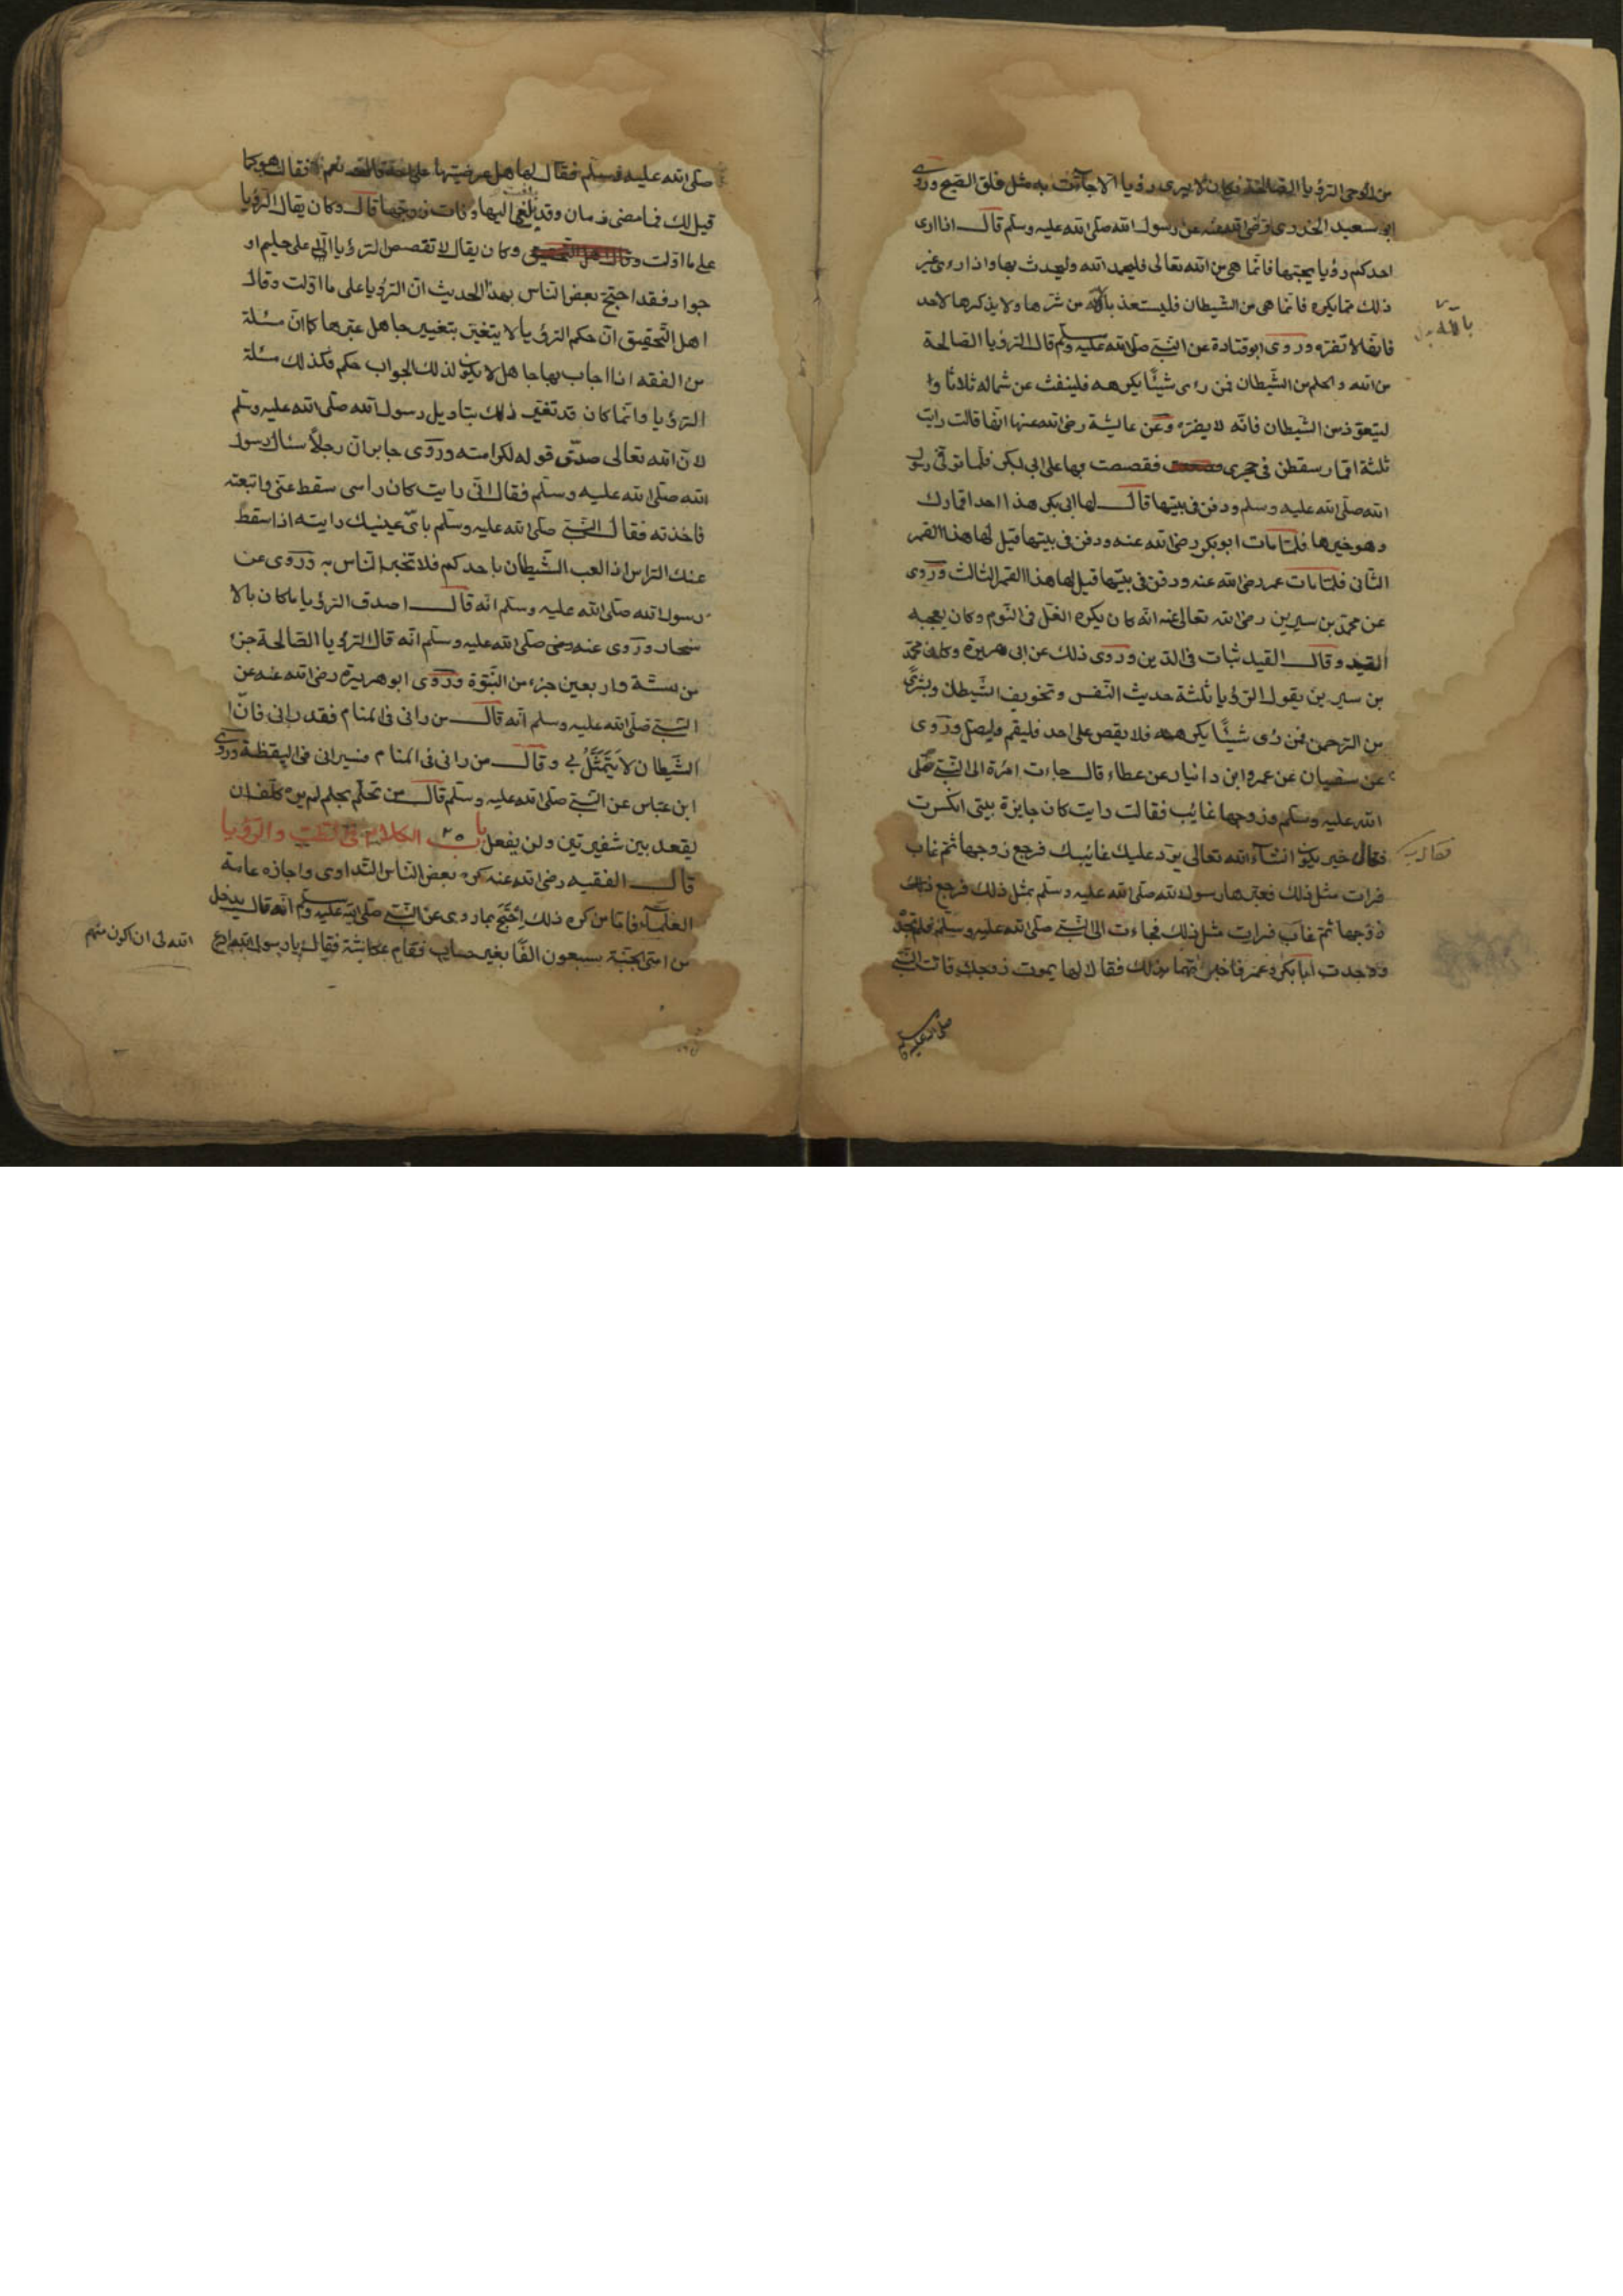 من الوحى الرؤيا الصالحة فكان لا يرى رؤيا الا جاءت به مثل فلق الصبح وروى
ابو سعيد الخدرى رضى الله عنه عن رسول الله صلى الله عليه وسلم قال اذا ارى
احدكم رؤيا يحبتها فانما هى من الله تعالى فليحمد الله وليحدث بها واذا رءى غير
ذلك مما يكره فانما هى من الشيطان فليستعذ بالله من شرها ولا يذكرها لاحد
بالله
فانها لا تضره وروى ابو قتادة عن النبى صلى الله عليه وسلم قال الرؤيا الصالحة
من الله والحلم من الشيطان فمن رءى شيئا يكرهه فلينفث عن شماله ثلاثا و
ليتعوذ من الشيطان فانه لا يضره وعن عايشة رضى الله عنها انها قالت رايت
ثلثة اقمار سقطن فى حجرى فقصصت بها على ابى بكر فلما توفى رسول
الله صلى الله عليه وسلم ودفن فى بيتها قال لها ابى بكر هذا احد اقمارك
وهو خيرها فلما مات ابو بكر رضى الله عنه ودفن فى بيتها قيل لها هذا القمر
الثانى فلما مات عمر رضى الله عنه ودفن فى بيتها قيل لها هذا القمر الثالث وروى
عن محمد بن سيرين رضى الله تعالى عنه انه كان يكره الغل فى النوم وكان يعجبه
القيد وقال القيد ثبات فى الدين وروى ذلك عن ابى هريرة وكان محمد
بن سيرين يقول الرؤيا ثلثة حديث النفس وتخويف الشيطان وبشرى
من الرحمن فمن رءى شيئا يكرهه فلا يقص على احد فليقم وليصل وروى
عن سفيان عن عمرو ابن دانيار عن عطاء قال جاءت امرة الى النبى صلى
الله عليه وسلم وزوجها غائب فقالت رايت كان جايزة بيتى انكسرت
فقال خير يكون انشاء الله تعالى يرد عليك غائبك فرجع زوجها ثم غاب
فقالت
فرات مثل ذلك فعبرها رسول الله صلى الله عليه وسلم بمثل ذلك فرجع ذلك
زوجها ثم غاب فرات مثل ذلك فجاءت الى النبى صلى الله عليه وسلم فلم تجد
ووجدت ابا بكر وعمر فاخبرتهما بذلك فقالا لها يموت زوجك فاتت النبى
صلى الله عليه
صلى الله عليه وسلم فقال لها هل عرضيتها على نعم فقال هو كما
قيل لك فما مضى زمان وقد اليها وفات زوجها قال وكان يقال الرؤيا
على ما اولت وكان يقال لا تقصص الرؤيا الا على حليم او
جواد فقد احتج بعض الناس بهذا الحديث ان الرؤيا على ما اولت وقال
اهل التحقيق ان حكم الرؤيا لا يتغير بتغيير جاهل عبرها كما ان مسئلة
من الفقه اذا اجاب بها جاهل لا يكون لذلك الجواب حكم فكذلك مسئلة
الرؤيا وانما كان قد تغير ذلك بتاويل رسول الله صلى الله عليه وسلم
لان الله تعالى صدق قوله لكرامته وروى جابر ان رجلا سئال رسول
الله صلى الله عليه وسلم فقال انى رايت كان راسى سقط عنى واتبعته
فاخذته فقال النبى صلى الله عليه وسلم باى عينيك رايته اذا سقط
عنك الراس اذا لعب الشيطان باحدكم فلا تخبر الناس به وروى عن
رسول الله صلى الله عليه وسلم انه قال اصدق الرؤيا ما كان بالا
سحار وروى عنه صلى الله عليه وسلم انه قال الرؤيا الصالحة جزء
من ستة واربعين جزء من النبوة وروى ابو هريرة رضى الله عنه عن
النبى صلى الله عليه وسلم انه قال من رانى فى المنام فقد رانى فان
الشيطان لا يتمثل بى وقال من رانى فى المنام فسيرانى فى اليقظة وروى
ابن عباس عن النبى صلى الله عليه وسلم قال من تحلم بحلم لم يره كلف ان
يقعد بين شفيرتين ولن يفعل باب ٢٥ الكلام فى الطب والرؤيا
قال الفقيه رضى الله عنه كره بعض الناس التداوى واجازه عامة
العلماء فاما من كره ذلك احتج بما روى عن النبى صلى الله عليه وسلم انه قال يدخل
من امتى الجنة سبعون الفا بغير حساب فقام عكاشة فقال يا رسول الله ادع
الله لى ان اكون منهم